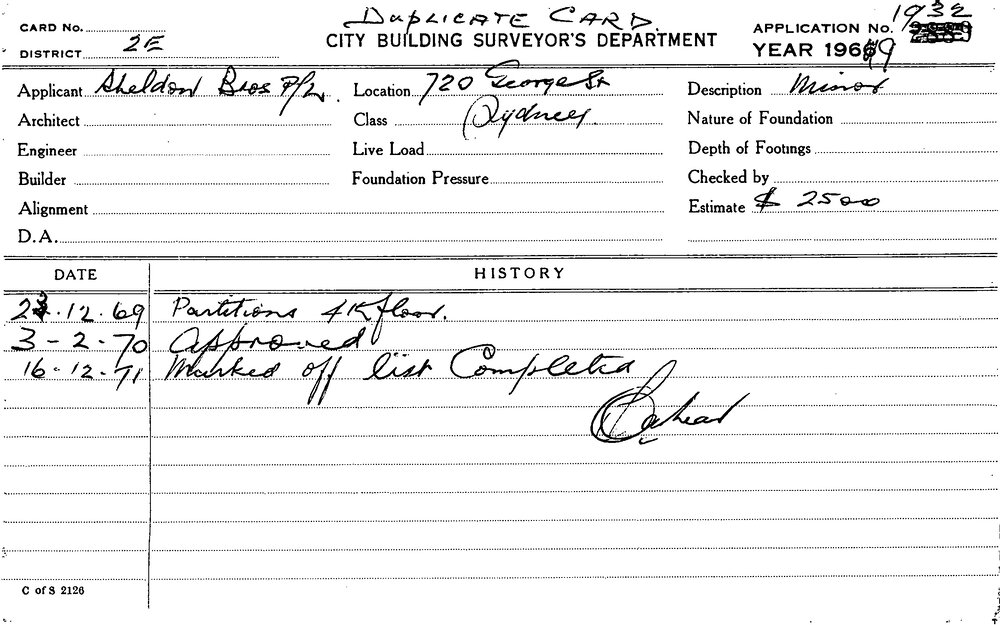 DUPLICATE CARD
CARD No.
CITY BUILDING SURVEYOR'S DEPARTMENT
APPLICATION No. 1932
DISTRICT 2E
YEAR 1969
Applicant Sheldon Bros P/L. Location 720 George St Description Minor
Architect Class Sydney. Nature of Foundation
Engineer Live Load Depth of Footings
Builder Foundation Pressure Checked by
Alignment Estimate $ 2500
D.A.
DATE HISTORY
23.12.69 Partitions 4th floor.
3-2-70 Approved
16-12-71 Marked off list Completed
C of S 2126